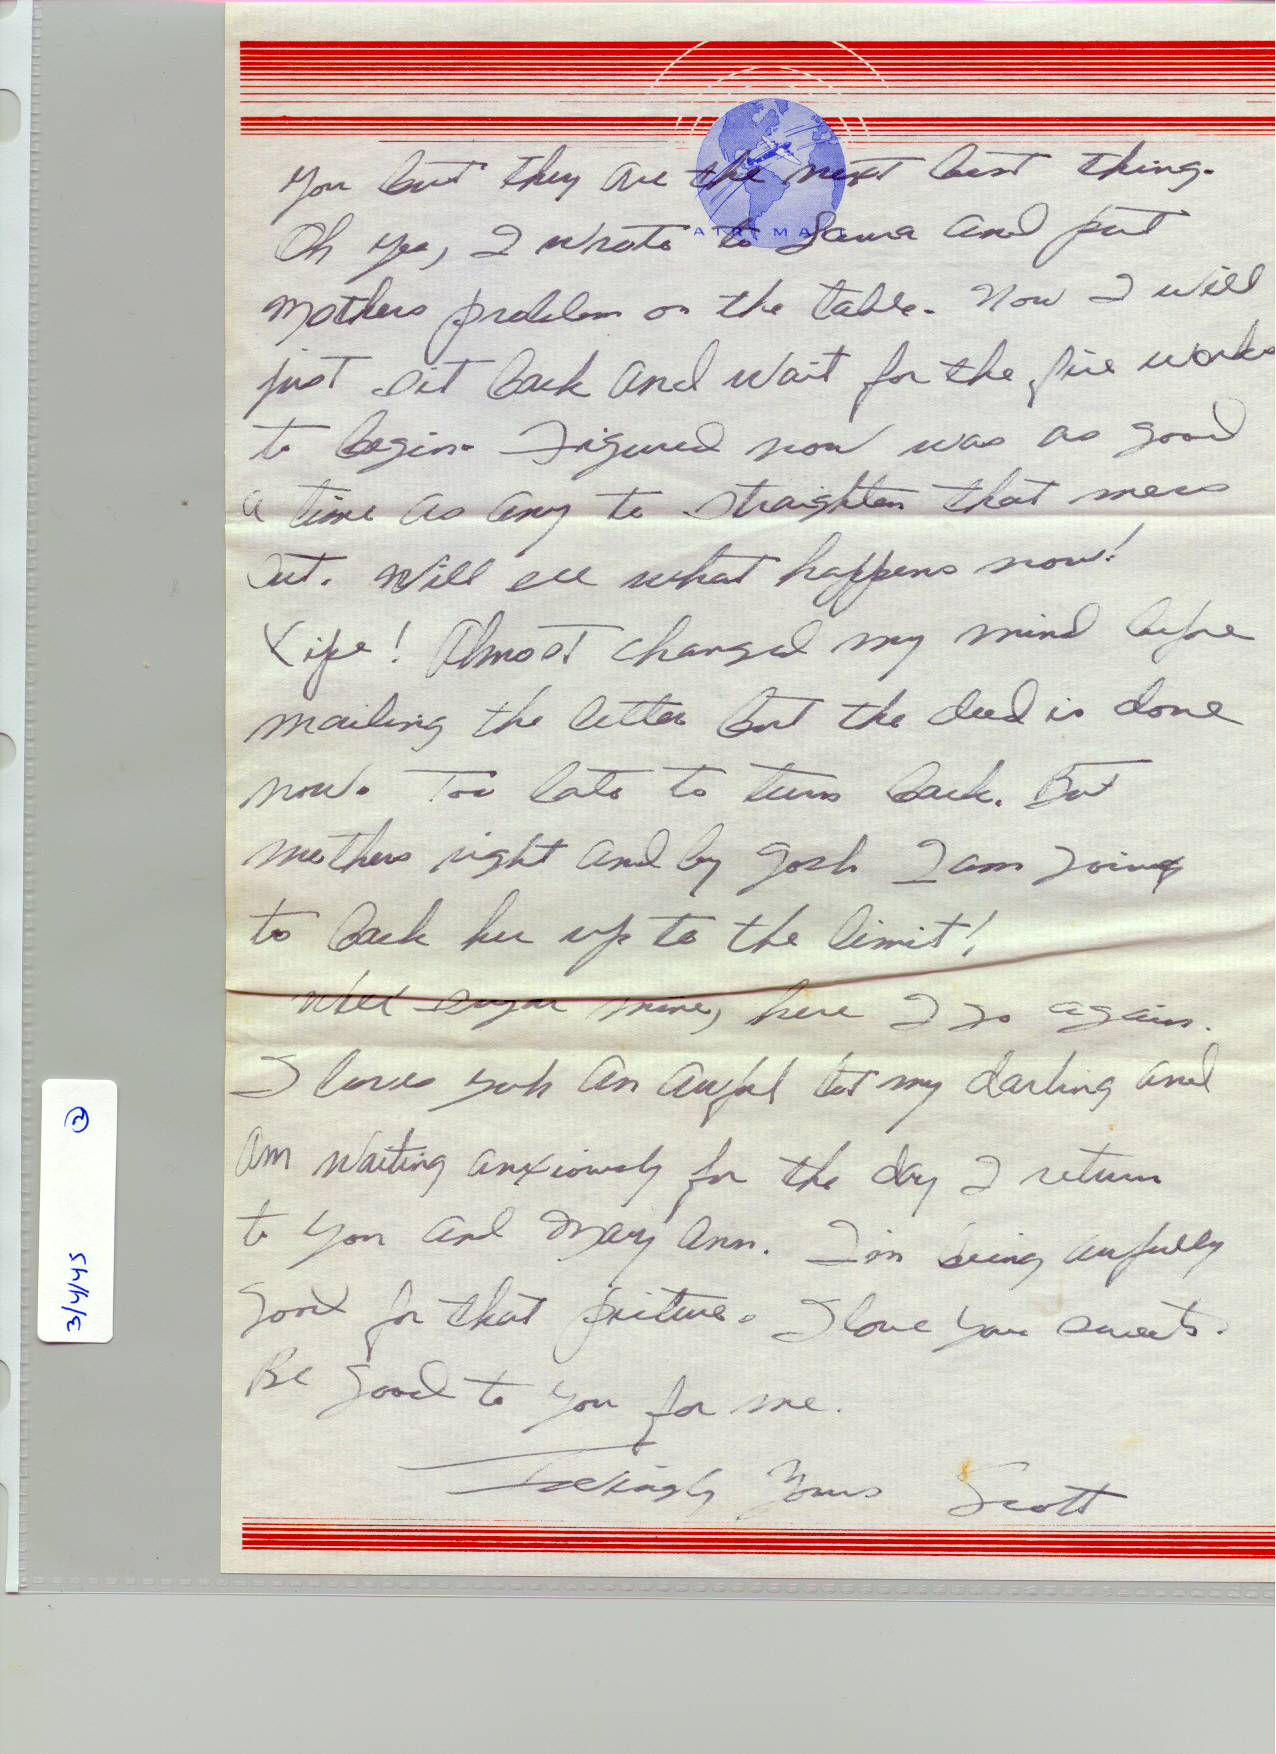 You but they are the next best thing.
AIR MAIL
Oh yes, I wrote to Laura and put
mothers problem on the table. Now I will
just sit back and wait for the fire works
to begin. Figured now was as good
a time as any to straighten that mess
out. Will see what happens now!
Yipe! Almost changed my mind before
mailing the letter but the deed is done
now. Too late to turn back. But
mothers right and by gosh I am going
to back her up to the limit!
Well sugar mine, here I go again.
I loves yuh an awful lot my darling and
am waiting anxiously for the day I return
to you and Mary Ann. I'm being awfully
good for that picture. I love you sweets.
Be good to you for me.
Lovingly Yours Scott
3/4/45 2